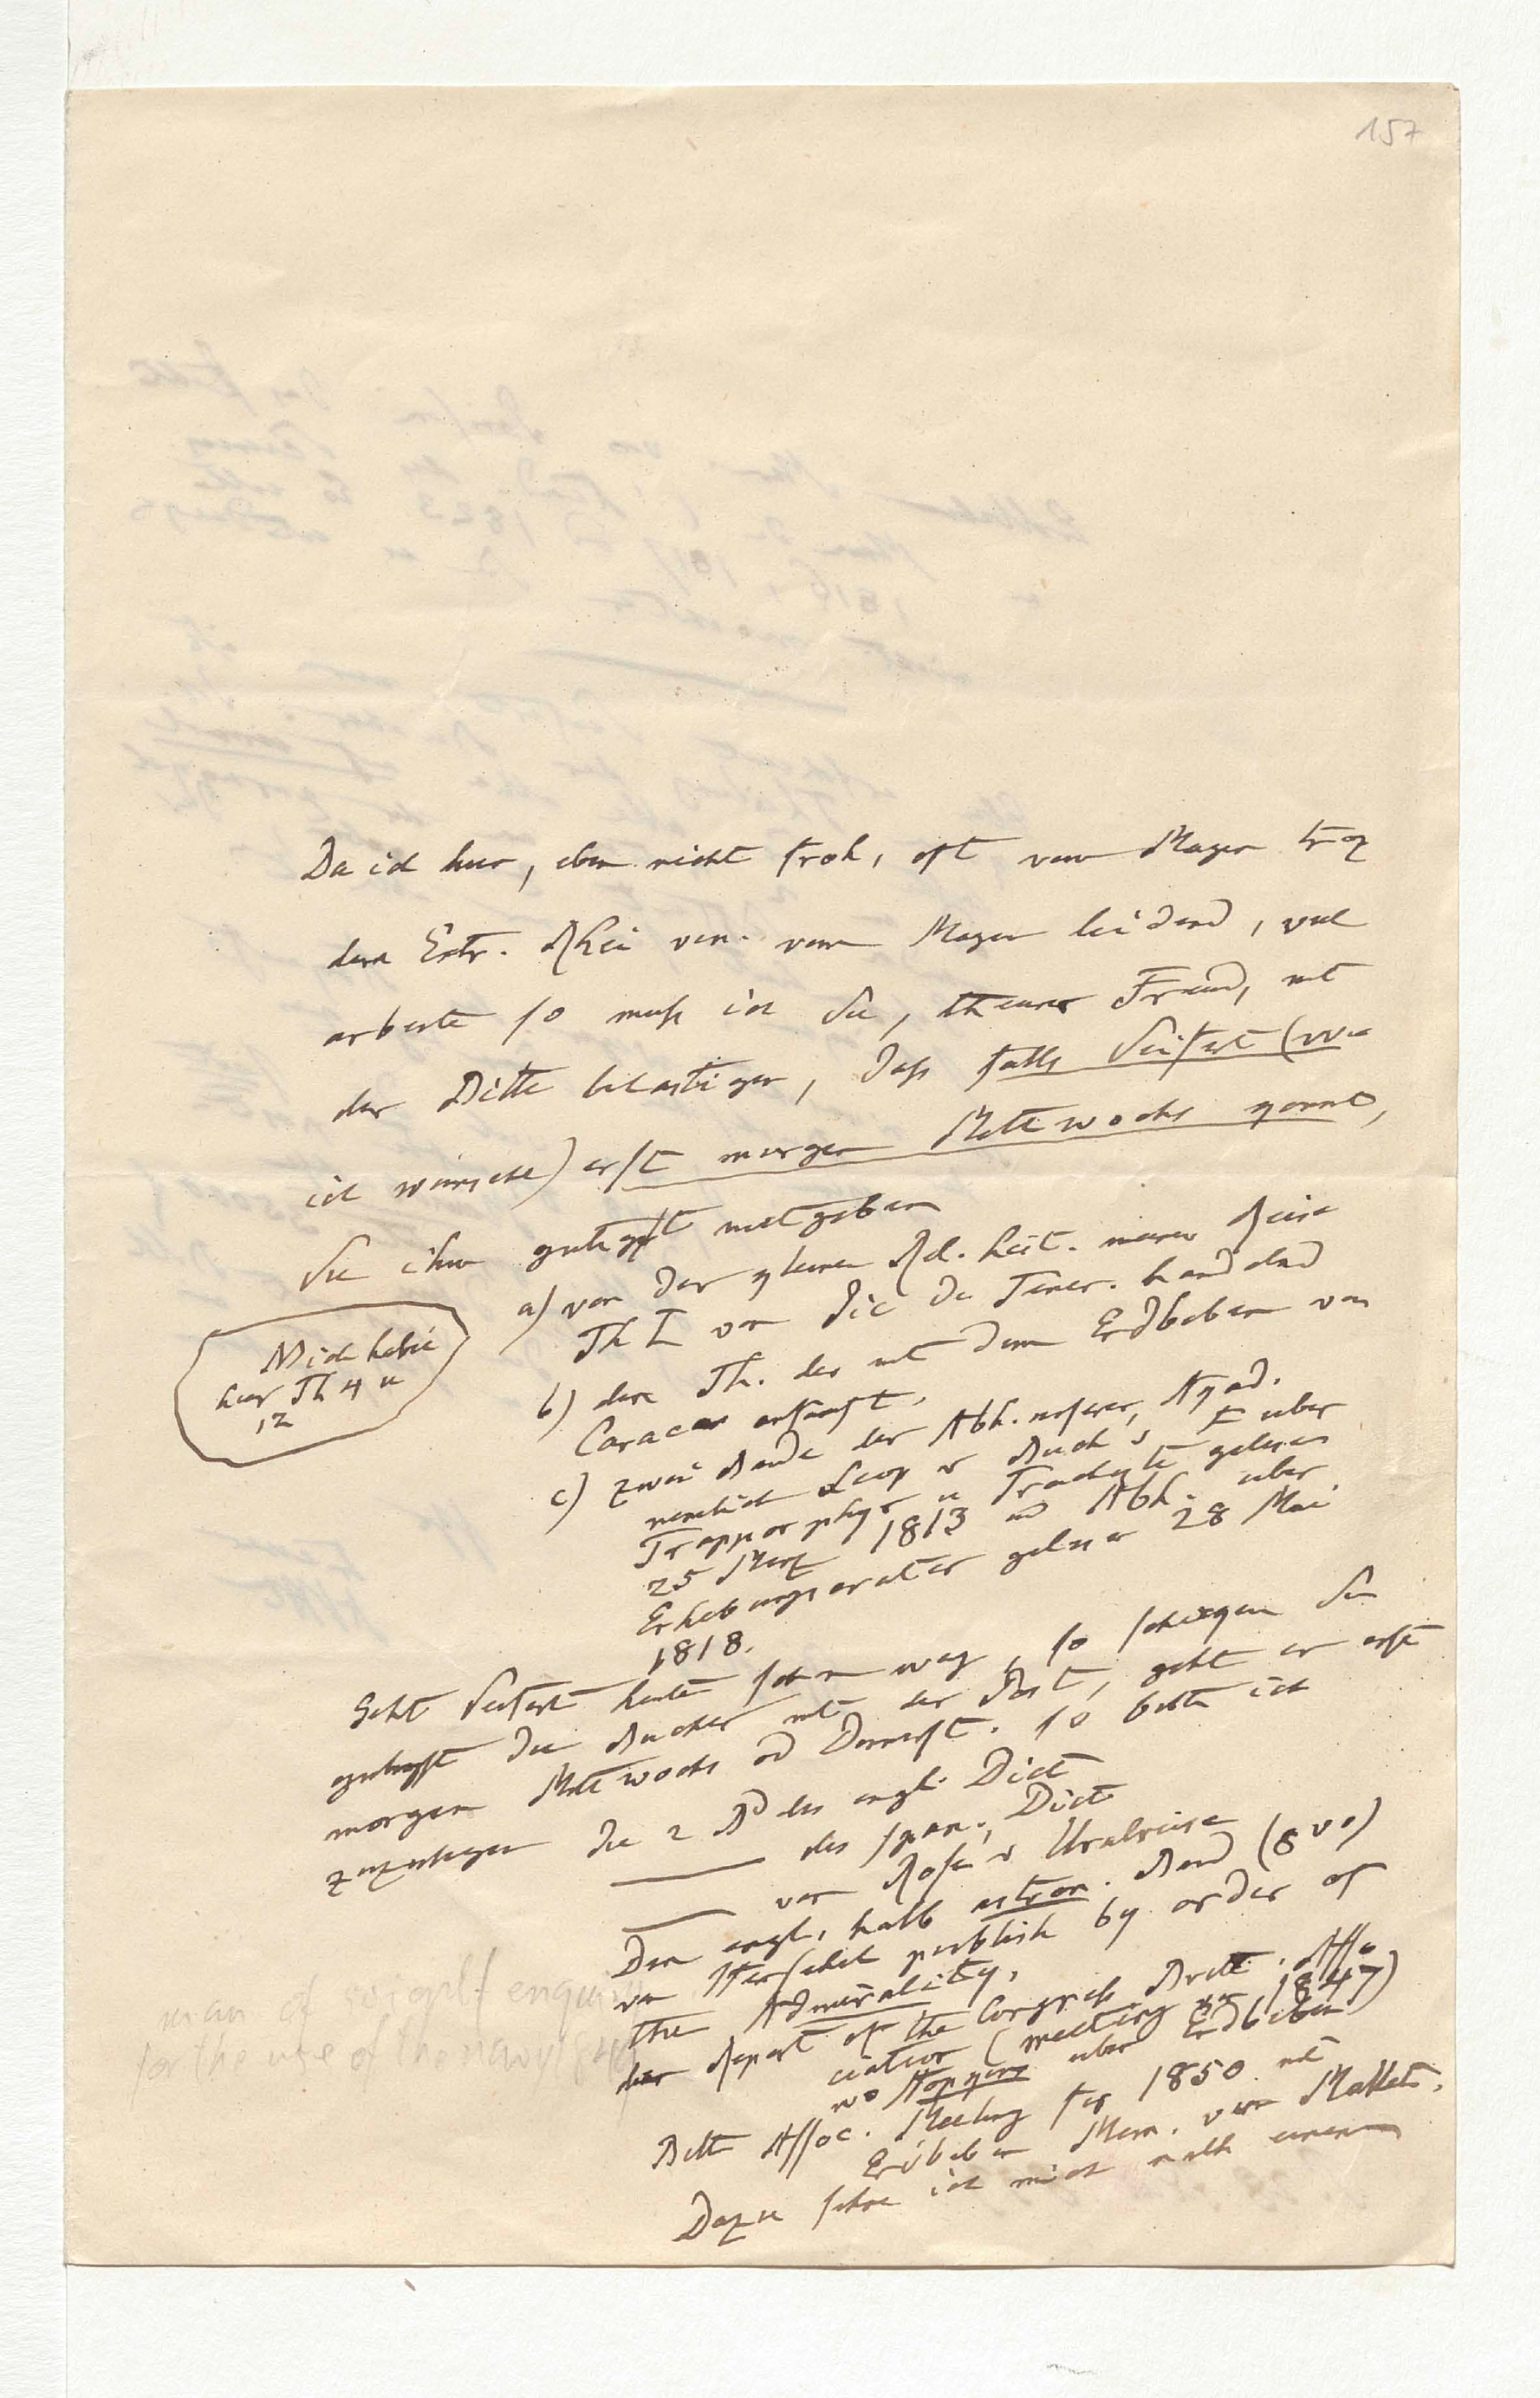 157
Da ich hier, eben nicht froh, oft vom Magen troz
dem Extr. Rhei vin. vom Magen leidend, viel
arbeite so muß ich Sie, theurer Freund, mit
der Bitte belästigen, daß falls Seifert (wie
ich wünsche) erst morgen Mittwochs kommt,
Sie ihm gütigst mitgeben
a) von der kleinen Rel. hist. meiner Reise
Th I von Pic de Tener. handelnd
b) den Th. der mit dem Erdbeben von
Caracas anfängt.
Mich habe
hier Th 4 u
12
c) zwei Bände der Abh. unserer Akad.
nemlich Leop v Buch's über
Trapporphyr u Trachyte gelesen
25 Merz 1813 und Abh. über
Erhebungscrater gelesen 28 Mai
1818.
Geht Seifert heute schon weg, so schicken Sie
gütigst die Bücher mit der Post, geht er erst
morgen Mittwochs od Donnerst. so bitte ich
zuzulegen die 2 Bd des engl. Dict
des span. Dict
von Rose's Uralreise
Den engl. halb astron. Band (8vo)
von Herschel publish by order of
the Admirality.
der Report of the Congress Britt. Asso
ciation (meeting 1847)
wo Hopkins über Erdbeben
Britt Assoc. Meeting for 1850 mit
Erdbeben Mem. von Mallet.
Dazu sehne ich mich nach einem
man of scientf enquiry
for the use of the navy 1849